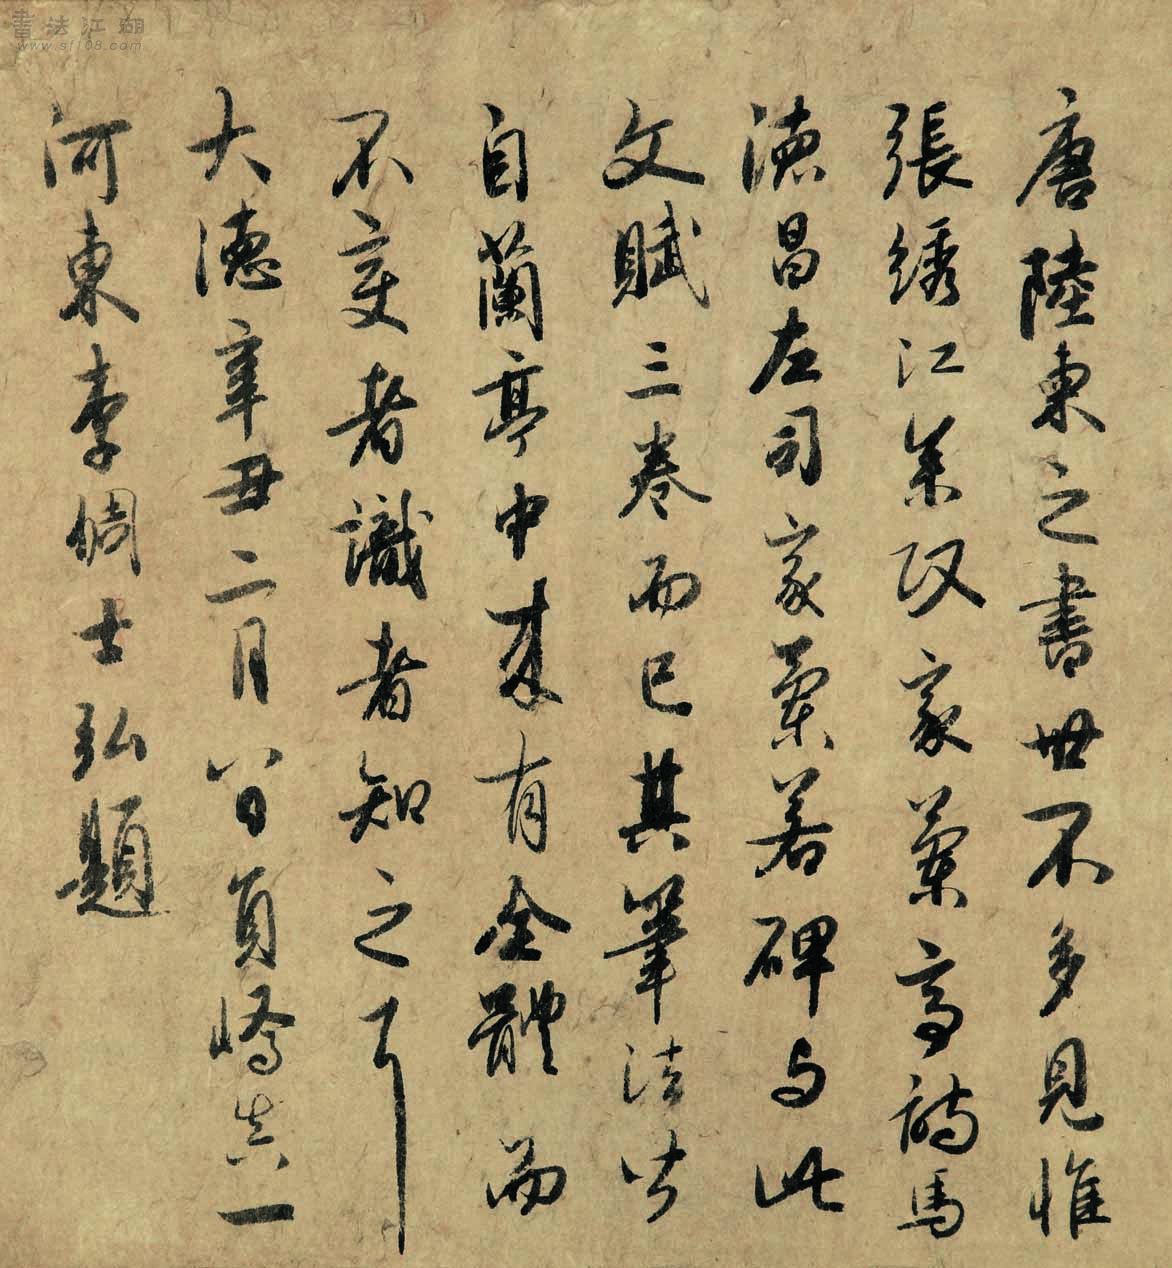 書法江湖
www.sf108.com
唐陸東之書世不多見惟
張綉江參政家藁亭詩馬
德昌左司家藁若碑与此
文賦三卷而已其筆法皆
自蘭亭中來有全體而
不変者識者知之耳
大德辛丑二月八日員嶠真一
河東李倜士弘題